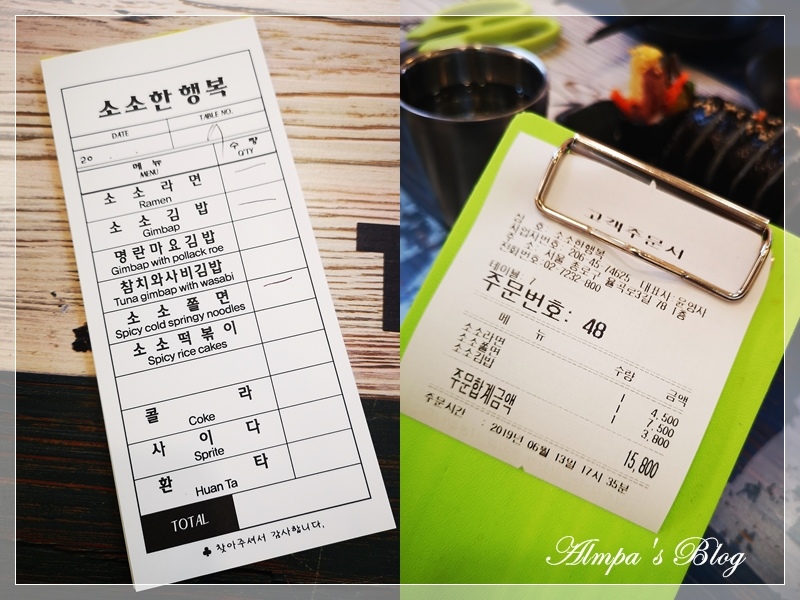 소소한행복
DATE
TABLE NO.
20
메 뉴
MENU
수 량
Q'TY
소 소 라 면
Ramen
소 소 김 밥
Gimbap
명란마요김밥
Gimbap with pollack roe
참치와사비김밥
Tuna gimbap with wasabi
소 소 쫄 면
Spicy cold springy noodles
소 소 떡 볶 이
Spicy rice cakes
콜 라
Coke
사 이 다
Sprite
환 타
Huan Ta
TOTAL
♣ 찾아주셔서 감사합니다.
고객주문서
상 호 : 소소한행복
사업자번호 : 206 45 74625
주 소 : 서울 종로구 율곡로3길 78 1층
전화번호: 02 7232 800
테이블: 7
주문번호: 48
메 뉴 수량 금액
소소라면 1 4,500
소소쫄면 1 7,500
소소김밥 1 3,800
주문합계금액 15,800
주문시간 : 2019년 06월 13일 17시 35분
Almpa's Blog